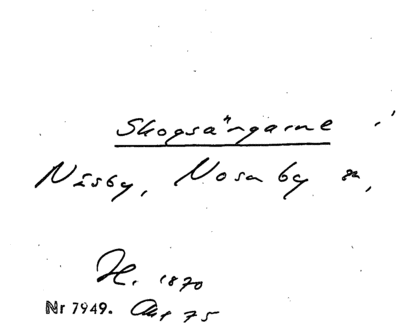 Skogsängarne
Näsby, Nosaby sn,
H. 1870
Nr 7949.